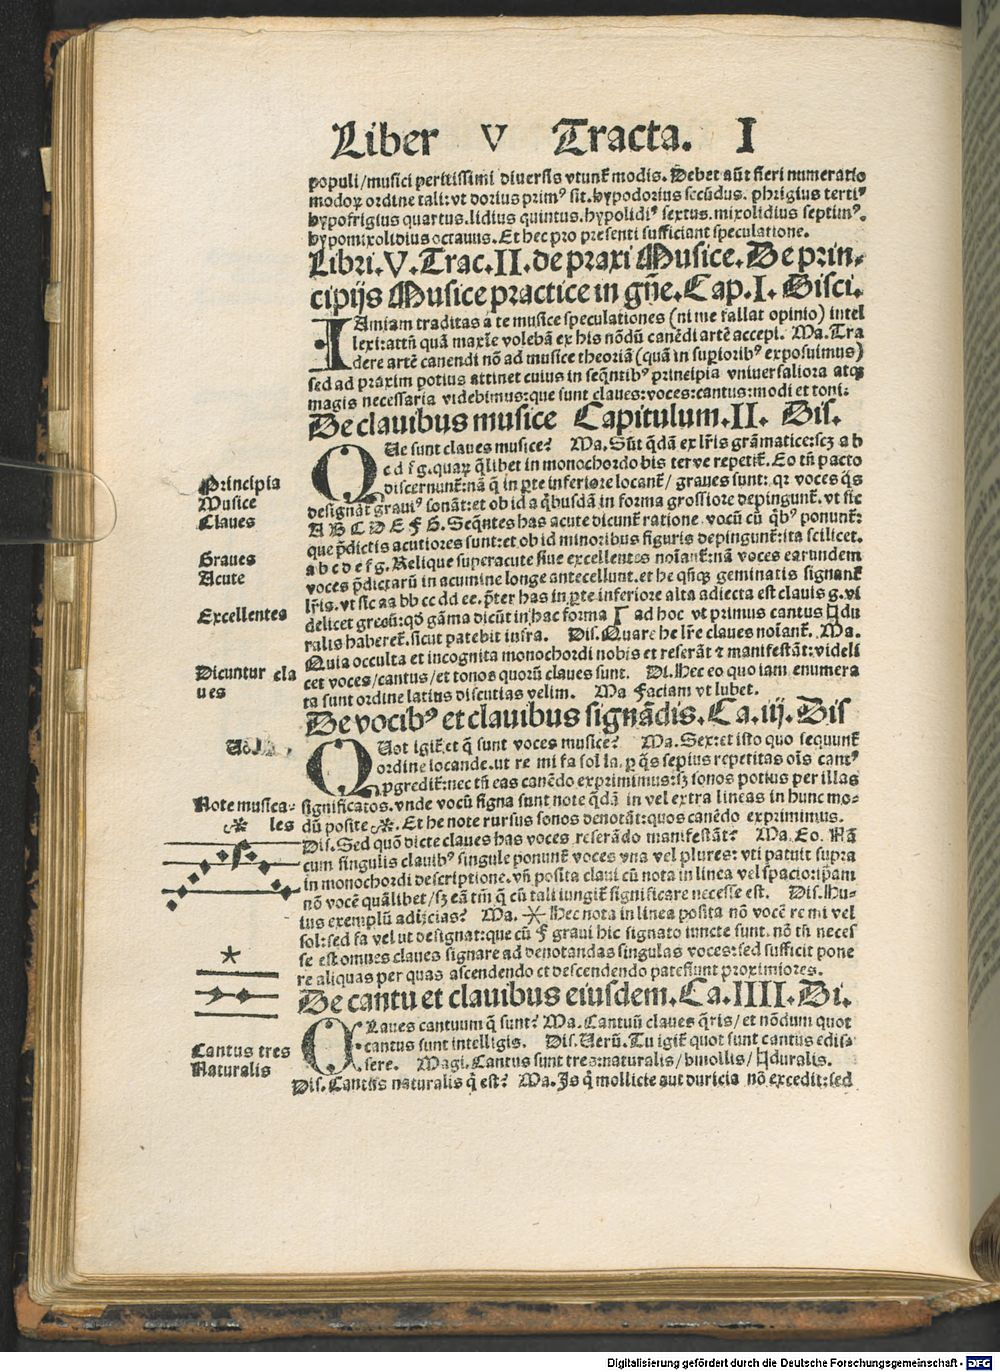 Liber V Tracta. I
populi/musici peritissimi diuersis vtunt᷑ modis. Debet aūt fieri numeratio
modoꝝ ordine tali: vt dorius primꝰ sit. hypodorius secūdus. phrigius tertiꝰ
hypofrigius quartus. lidius quintus. hypolidiꝰ sextus. mixolidius septimꝰ.
hypomixolidius octauus. Et hec pro presenti sufficiant speculatione.
Libri. V. Trac. II. de praxi Musice. De prin-
cipijs Musice practice in gn̄e. Cap. I. Disci.
IAmiam traditas a te musice speculationes (ni me fallat opinio) intel
lexi: attn̄ quā maxīe volebā ex his nōdū canēdi artē accepi. Ma. Tra
dere artē canendi nō ad musice theoriā (quā in superioribꝰ exposuimus)
sed ad praxim potius attinet cuius in seq̄ntibꝰ principia vniuersaliora atqꝫ
magis necessaria videbimus: que sunt claues: voces: cantus: modi et toni.
De clauibus musice Capitulum. II. Dis.
QUe sunt claues musice? Ma. Sūt q̄dā ex lr̄is grāmatice: scꝫ a b
c d e f g. quaꝝ q̄libet in monochordo bis terve repetit᷑. Eo tn̄ pacto
discernunt᷑: nā q̄ in ꝑte inferiore locant᷑/ graues sunt: qꝛ voces q̄s
designāt grauiꝰ sonāt: et ob id a q̄busdā in forma grossiore depingunt᷑. vt sic
A B C D E F G. Seq̄ntes has acute dicunt᷑ ratione vocū cū q̄bꝰ ponunt᷑:
que p̄dictis acutiores sunt: et ob id minoribus figuris depingunt᷑: ita scilicet.
a b c d e f g. Relique superacute siue excellentes noīant᷑: nā voces earundem
voces p̄dictarū in acumine longe antecellunt. et he q̄siqꝫ geminatis signant᷑
lr̄is. vt sic aa bb cc dd ee. p̄ter has in ꝑte inferiore alta adiecta est clauis g. vi
delicet grecū: qd̄ gāma dicūt in hac forma Γ ad hoc vt primus cantus ♮du
ralis haberet᷑. sicut patebit infra. Dis. Quare he lr̄e claues noīant᷑. Ma.
Quia occulta et incognita monochordi nobis et reserāt ⁊ manifestāt: videli
cet voces/cantus/et tonos quorū claues sunt. Di. Hec eo quo iam enumera
ta sunt ordine latius discutias velim. Ma Faciam vt lubet.
De vocibꝰ et clauibus signādis. Ca. iij. Dis
QUot igit᷑ et q̄ sunt voces musice? Ma. Sex: et isto quo sequunt᷑
ordine locande. ut re mi fa sol la. ꝑ q̄s sepius repetitas oīs cantꝰ
ꝓgredit᷑: nec tn̄ eas canēdo exprimimus: sꝫ sonos potius per illas
significatos. vnde vocū signa sunt note q̄dā in vel extra lineas in hunc mo-
dū posite. Et he note rursus sonos denotāt: quos canēdo exprimimus.
Dis. Sed quō dicte claues has voces reserādo manifestāt? Ma. Eo. Nā
cum singulis clauibꝰ singule ponunt᷑ voces vna vel plures: vti patuit supra
in monochordi descriptione. vn̄ posita claui cū nota in linea vel spacio: ip̄am
nō vocē quālibet/sꝫ eā tm̄ q̄ cū tali iungit᷑ significare necesse est. Dis. Hu-
ius exemplū adijcias? Ma. Hec nota in linea posita nō vocē re mi vel
sol: sed fa vel ut designat: que cū F graui hic signato iuncte sunt. nō tn̄ neces
se est omnes claues signare ad denotandas singulas voces: sed sufficit pone
re aliquas per quas ascendendo et descendendo patefiunt proximiores.
De cantu et clauibus eiusdem. Ca. IIII. Di.
CLaues cantuum q̄ sunt? Ma. Cantuū claues q̄ris/ et nōdum quot
cantus sunt intelligis. Dis. Verū. Tu igit᷑ quot sunt cantus edis-
sere. Magi. Cantus sunt tres: naturalis/bmollis/♮duralis.
Dis. Cantus naturalis q̄ est? Ma. Is q̄ mollicie aut duricia nō excedit: sed
Principia
Musice
Claues
Graues
Acute
Excellentes
Dicuntur cla
ues
Note musica-
les
Cantus tres
Naturalis
Digitalisierung gefördert durch die Deutsche Forschungsgemeinschaft - DFG